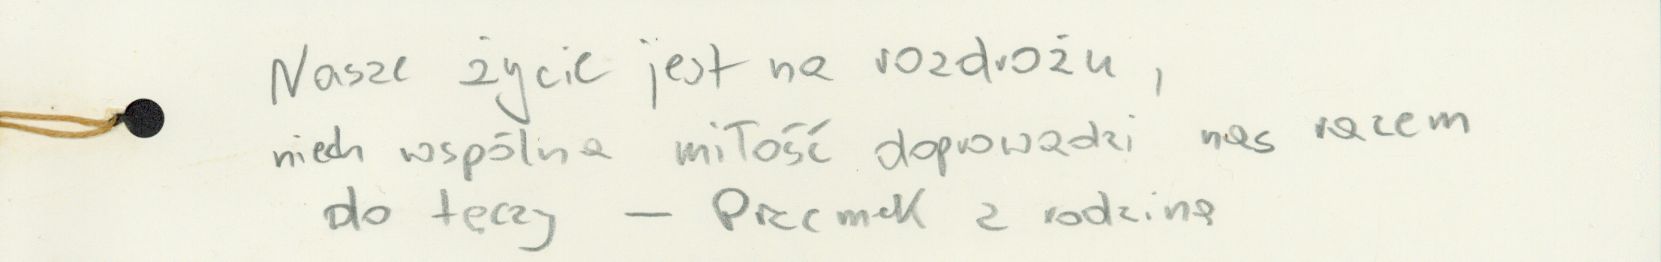 Nasze życie jest na rozdrożu,
niech wspólna miłość doprowadzi nas razem
do tęczy — Przemek z rodziną